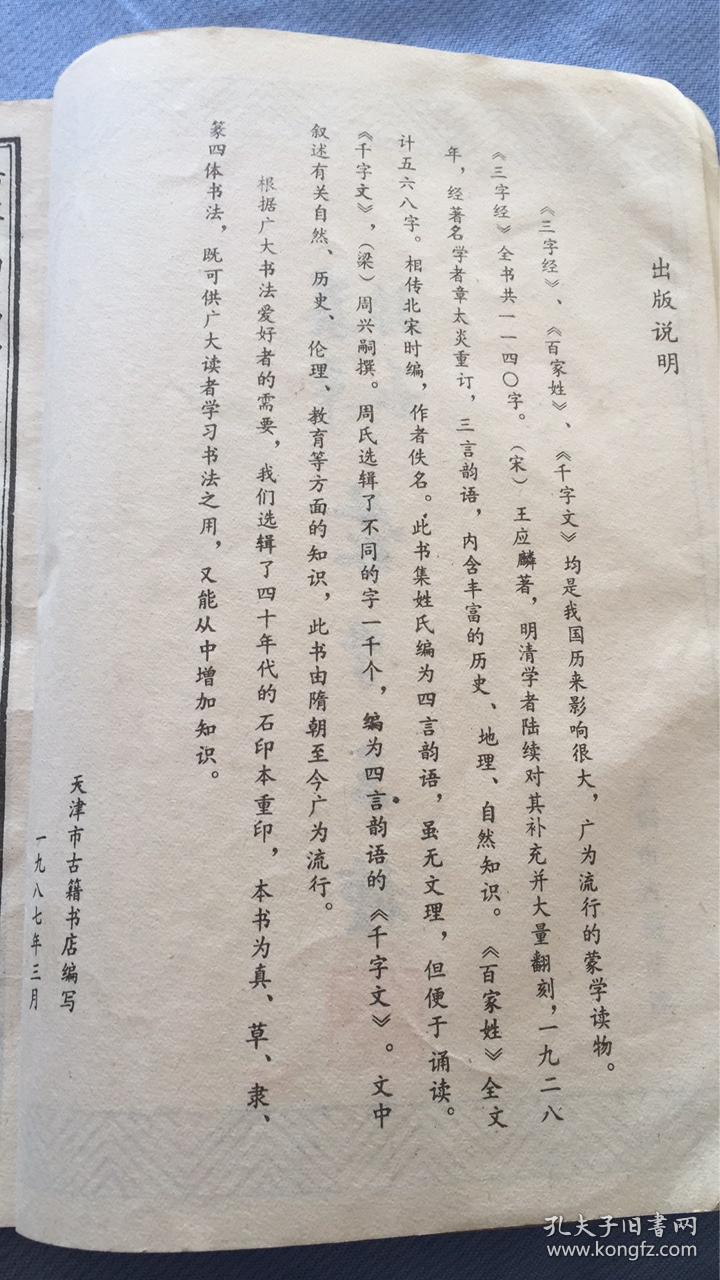 出版说明
《三字经》、《百家姓》、《千字文》均是我国历来影响很大，广为流行的蒙学读物。
《三字经》全书共一一四〇字。（宋）王应麟著，明清学者陆续对其补充并大量翻刻，一九二八
年，经著名学者章太炎重订，三言韵语，内含丰富的历史、地理、自然知识。《百家姓》全文
计五六八字。相传北宋时编，作者佚名。此书集姓氏编为四言韵语，虽无文理，但便于诵读。
《千字文》，（梁）周兴嗣撰。周氏选辑了不同的字一千个，编为四言韵语的《千字文》。文中
叙述有关自然、历史、伦理、教育等方面的知识，此书由隋朝至今广为流行。
根据广大书法爱好者的需要，我们选辑了四十年代的石印本重印，本书为真、草、隶、
篆四体书法，既可供广大读者学习书法之用，又能从中增加知识。
天津市古籍书店编写
一九八七年三月
孔夫子旧书网
www.kongfz.com